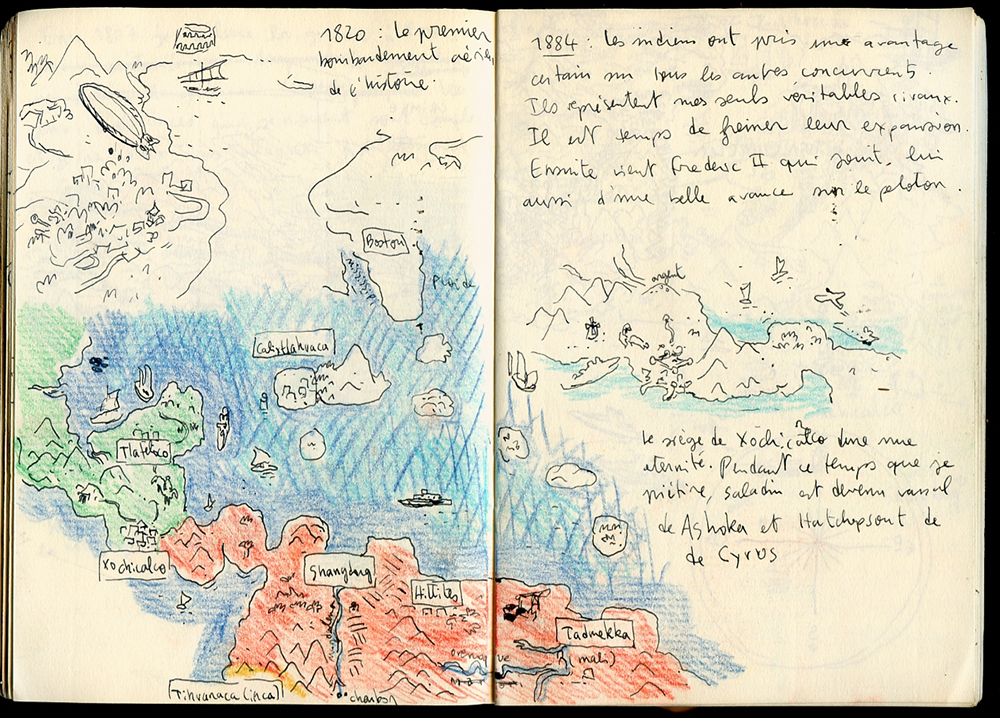 1820 : Le premier
bombardement aérien
de l'histoire
Boston
Mississipi
Floride
Calixtlahuaca
Tlatelolco
Xochicalco
Shanghai
Hittites
Tadmekka
(mali)
orenoque
Tihuanaca (inca)
charbon
1884 : les indiens ont pris une avantage
certain sur tous les autres concurrents.
Ils représentent mes seuls véritables rivaux.
Il est temps de freiner leur expansion.
Ensuite vient Frederic II qui jouit, lui
aussi d'une belle avance sur le peloton.
argent
Le siège de Xochicalco dure une
eternité. Pendant ce temps que je
piétine, Saladin est devenu vassal
de Ashoka et Hatchepsout de
de Cyrus